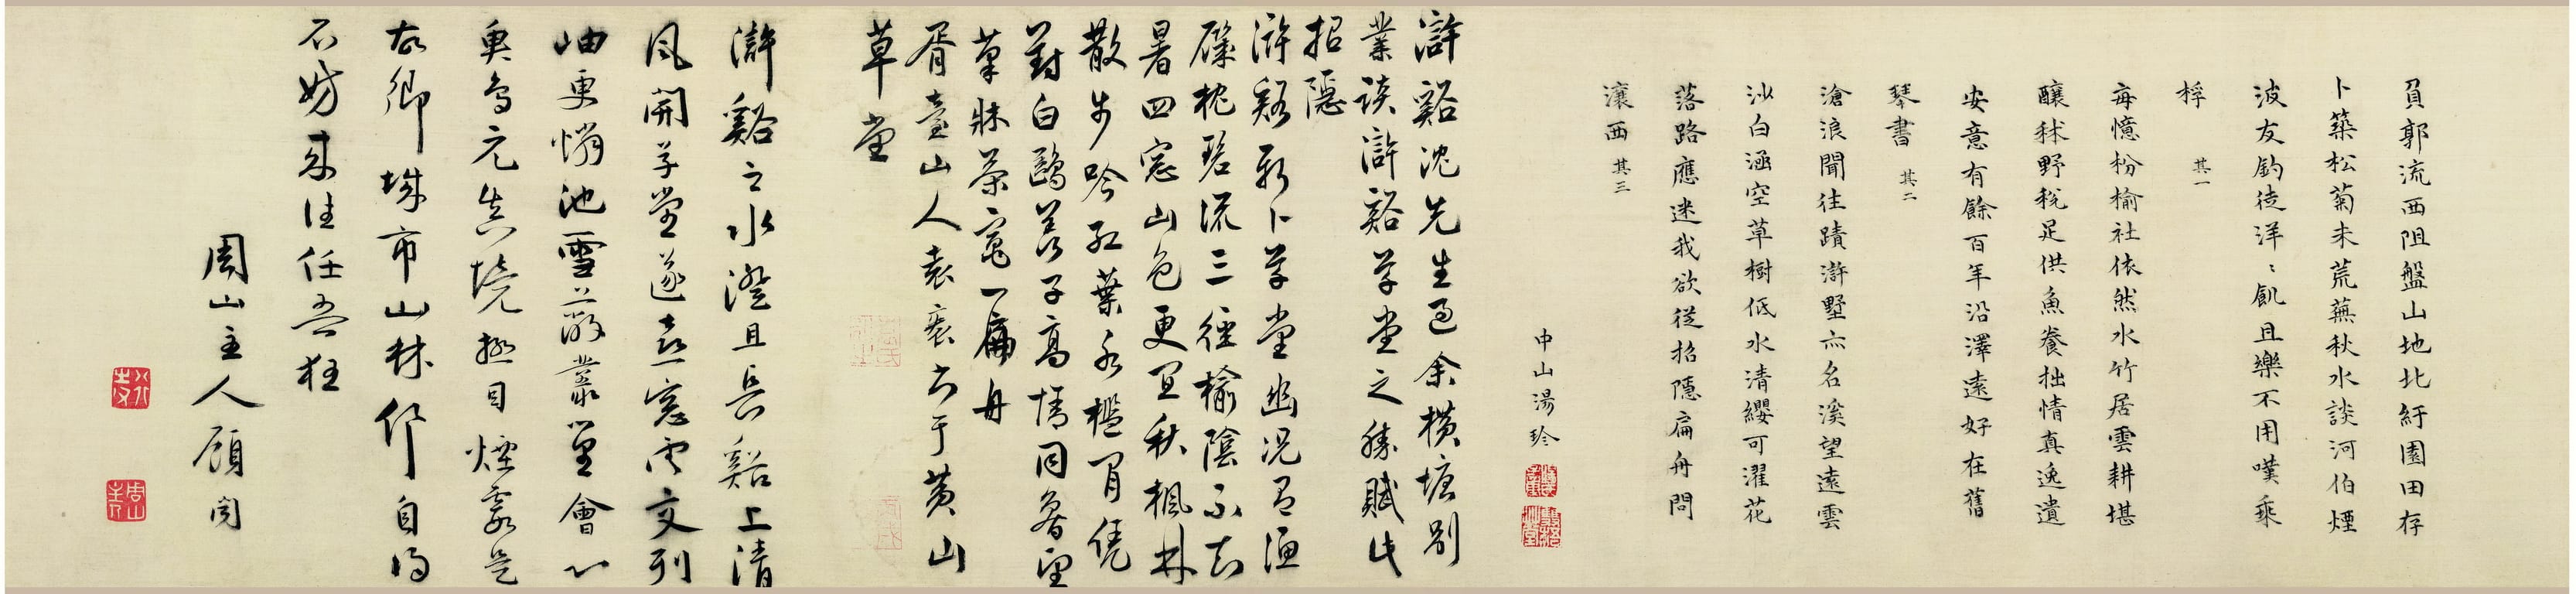 負郭流西阻盤山地北紆園田存
卜築松菊未荒蕪秋水談河伯煙
波友釣徒洋〻飢且樂不用嘆乘
桴 其一
每憶枌榆社依然水竹居雲耕堪
釀秫野稅足供魚養拙情真逸遺
安意有餘百年沿澤遠好在舊
琴書 其二
滄浪聞往蹟滸墅亦名溪望遠雲
沙白涵空草樹低水清纓可濯花
落路應迷我欲從招隱扁舟問
瀼西 其三
中山湯珍
滸谿沈先生過余橫塘別
業談滸谿草堂之勝賦此
招隱
滸谿新卜草堂幽况有漁
磯枕碧流三徑榆陰不知
暑四窓山色更宜秋楓林
散步吟紅葉水檻閒凭
對白鷗羡子高情同魯望
筆牀茶竈一扁舟
胥臺山人袁袠書于黃山
草堂
滸谿之水澄且長谿上清
風開草堂遂
岫更憐池雪散叢篁會心
魚鳥元真境極目煙霞是
故鄉城市山林行自得
不妨來往任吾狂
周山主人顧聞